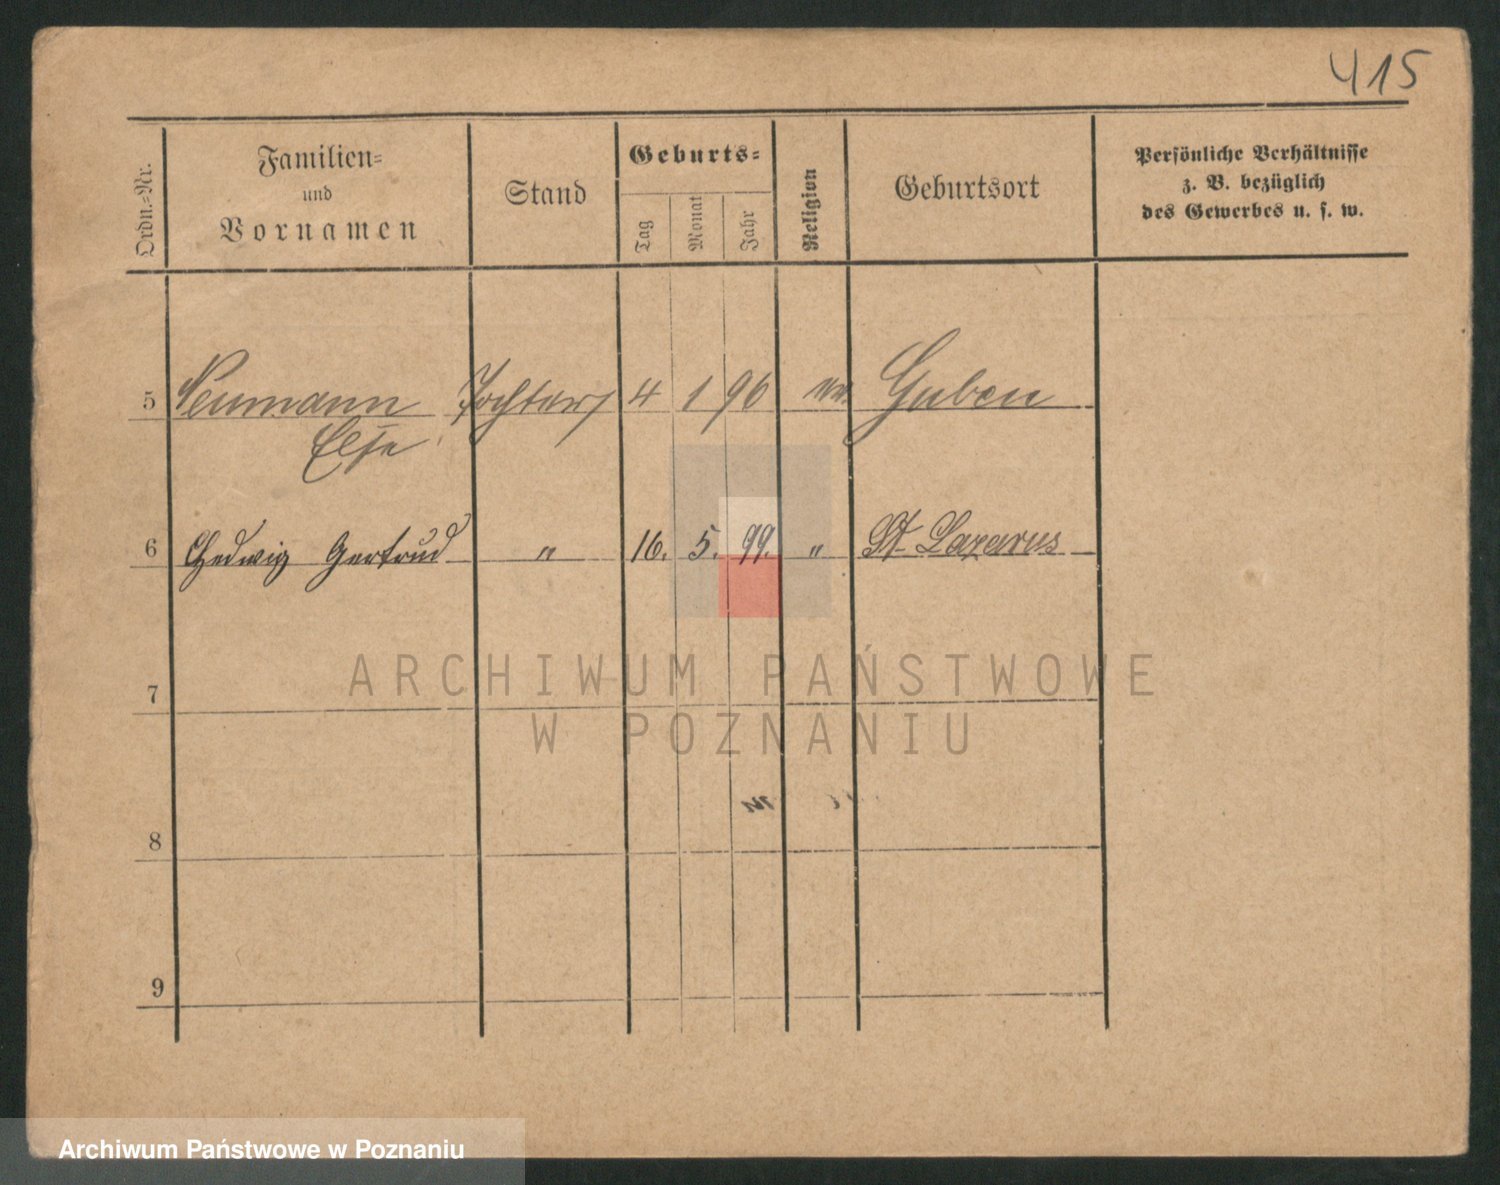 415
Ordn.-Nr.
Familien-
und
Vornamen
Stand
Geburts-
Tag
Monat
Jahr
Religion
Geburtsort
Persönliche Verhältnisse
z. B. bezüglich
des Gewerbes u. s. w.
5 Neumann Tochter 4 1 96 Guben
Else
6 Hedwig Gertrud " 16. 5. 99. " St. Lazarus
7
ARCHIWUM PAŃSTWOWE
W POZNANIU
8
9
Archiwum Państwowe w Poznaniu